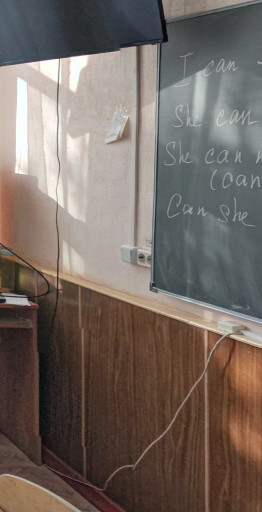 I can
She can
She can
(can
Can she